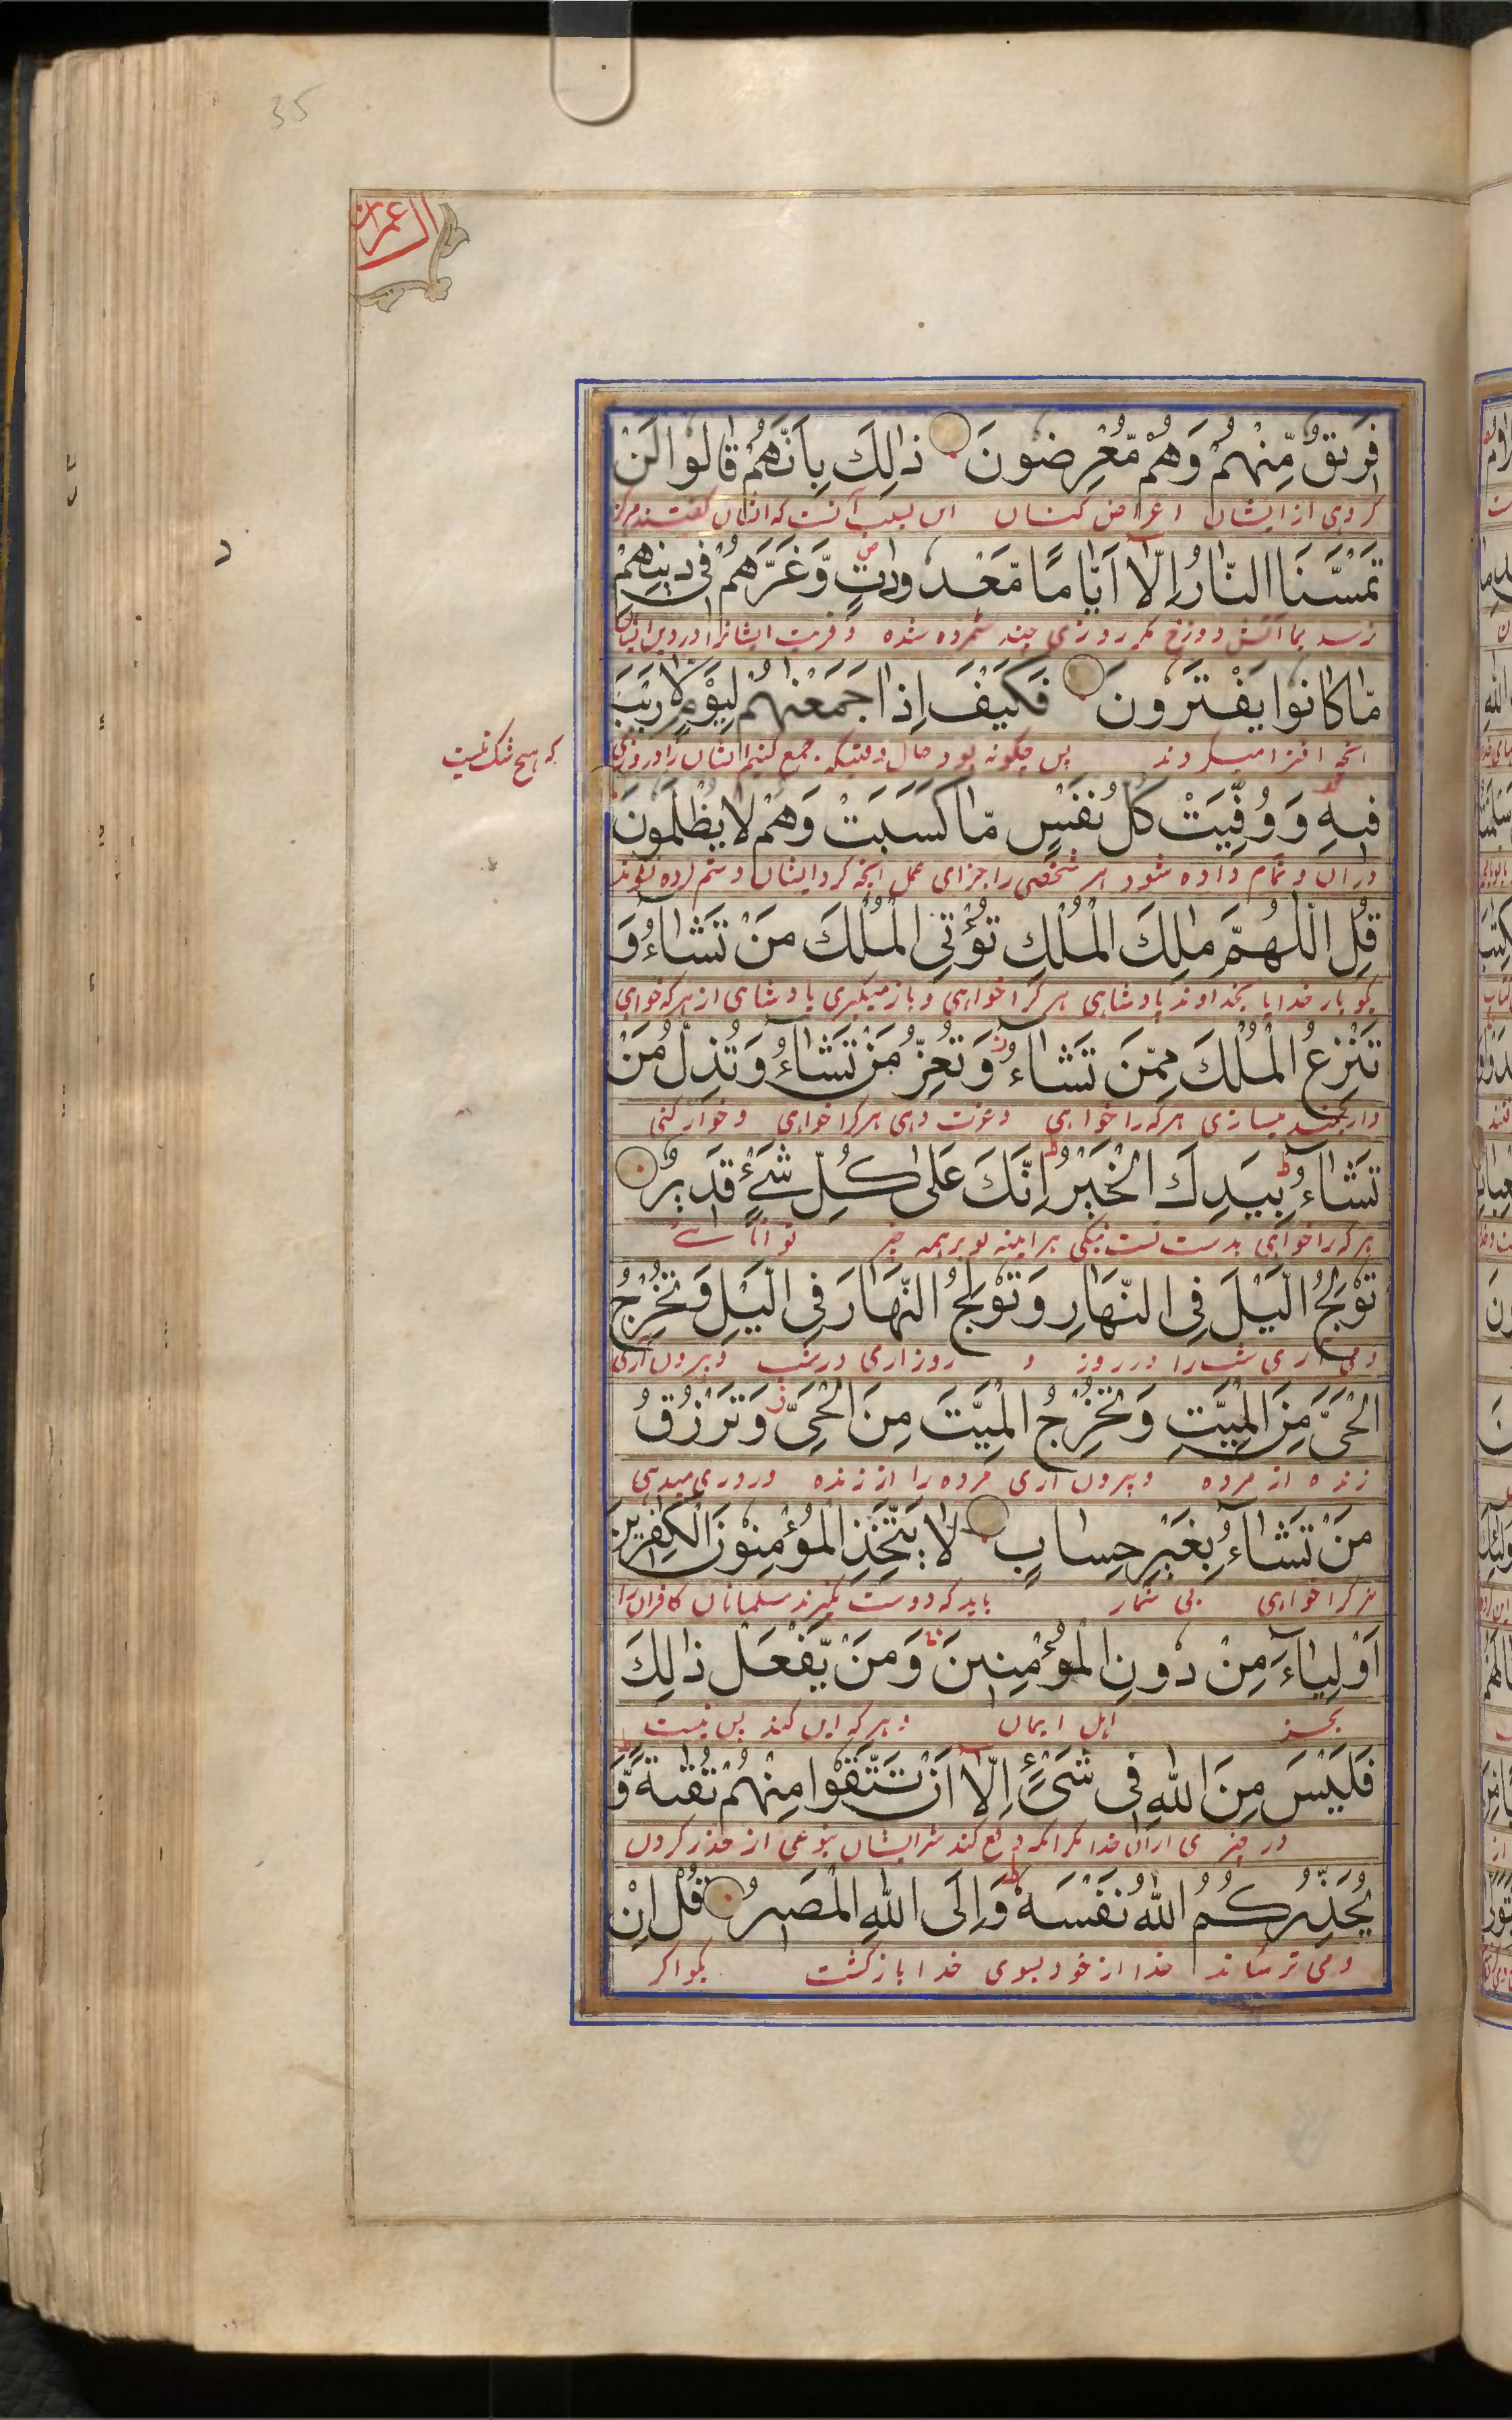 35
ال عمران
فَرِيقٌ مِّنْهُمْ وَهُمْ مُّعْرِضُونَ ذٰلِكَ بِاَنَّهُمْ قَالُوا لَنْ
كروهى از ايشان اعراض كنان اين بسبب آنست كه ايشان كفتند هركز
تَمَسَّنَا النَّارُ اِلَّا اَيَّامًا مَّعْدُودٰتٍ وَّغَرَّهُمْ فِى دِينِهِمْ
نرسد بما آتش دوزخ مكر روزى چند شمرده شده و فريب ايشانرا در دين ايشان
مَّا كَانُوا يَفْتَرُونَ فَكَيْفَ اِذَا جَمَعْنٰهُمْ لِيَوْمٍ لَّا رَيْبَ
انچه افترا ميكردند پس چكونه بود حال وقتيكه جمع كنيم ايشان را در روزى
كه هيچ شك نيست
فِيهِ وَوُفِّيَتْ كُلُّ نَفْسٍ مَّا كَسَبَتْ وَهُمْ لَا يُظْلَمُونَ
دران و تمام داده شود هر شخصى را جزاى عمل انچه كرد ايشان و ستم كرده نشوند
قُلِ اللّٰهُمَّ مٰلِكَ الْمُلْكِ تُؤْتِى الْمُلْكَ مَنْ تَشَاءُ وَ
بكو بار خدايا خداوند پادشاهى هر كرا خواهى و باز ميكيرى پادشاهى از هر كه خواهى
تَنْزِعُ الْمُلْكَ مِمَّنْ تَشَاءُ وَتُعِزُّ مَنْ تَشَاءُ وَتُذِلُّ مَنْ
وارجمند ميسازى هر كه را خواهى و عزت دهى هر كرا خواهى و خوار كنى
تَشَاءُ بِيَدِكَ الْخَيْرُ اِنَّكَ عَلٰى كُلِّ شَىْءٍ قَدِيرٌ
هر كه را خواهى بدست تست نيكى هراينه تو بر همه چيز توانائى
تُولِجُ الَّيْلَ فِى النَّهَارِ وَتُولِجُ النَّهَارَ فِى الَّيْلِ وَتُخْرِجُ
در مى ارى شب را در روز و روز ارى در شب و بيرون ارى
الْحَىَّ مِنَ الْمَيِّتِ وَتُخْرِجُ الْمَيِّتَ مِنَ الْحَىِّ وَتَرْزُقُ
زنده از مرده و بيرون ارى مرده را از زنده و روزى ميدهى
مَنْ تَشَاءُ بِغَيْرِ حِسَابٍ لَا يَتَّخِذِ الْمُؤْمِنُونَ الْكٰفِرِينَ
هر كرا خواهى بى شمار بايد كه دوست نكيرند مسلمانان كافران را
اَوْلِيَاءَ مِنْ دُونِ الْمُؤْمِنِينَ وَمَنْ يَّفْعَلْ ذٰلِكَ
بجز اهل ايمان و هر كه اين كند پس نيست
فَلَيْسَ مِنَ اللّٰهِ فِى شَىْءٍ اِلَّا اَنْ تَتَّقُوا مِنْهُمْ تُقٰىةً وَّ
در چيزى ازان خدا مكر انكه دفع كند شر ايشان بنوعى از حذر كردن
يُحَذِّرُكُمُ اللّٰهُ نَفْسَهُ وَاِلَى اللّٰهِ الْمَصِيرُ قُلْ اِنْ
و مى ترساند خدا از خود بسوى خدا بازكشت بكو اكر